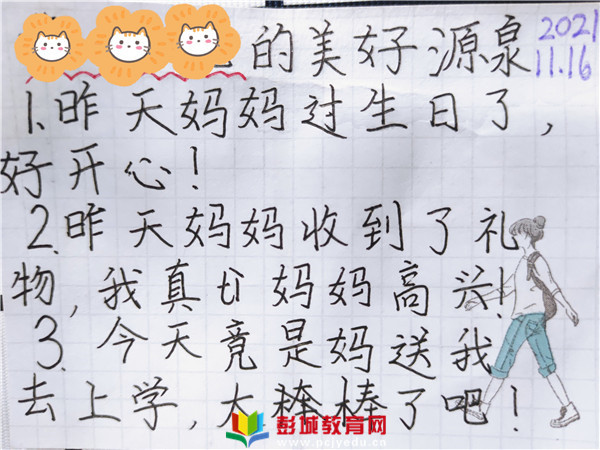 的美好源泉 2021
11.16
1.昨天妈妈过生日了,
好开心!
2.昨天妈妈收到了礼
物,我真ti妈妈高兴!
3.今天竟是妈送我
去上学,太棒了吧!
彭城教育网
www.pcjyedu.cn